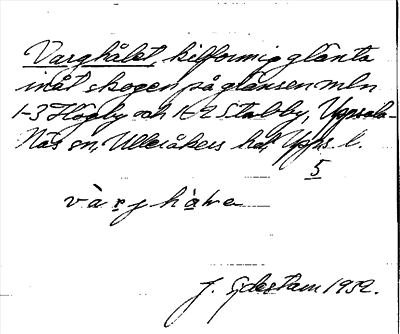 Varghålet, kilformig glänta
inåt skogen på gränsen mln
1-3 Högby och 1-2 Stabby, Uppsala-
Näs sn, Ulleråkers hd, Upps. l.
5
J. Sjöestam 1932.